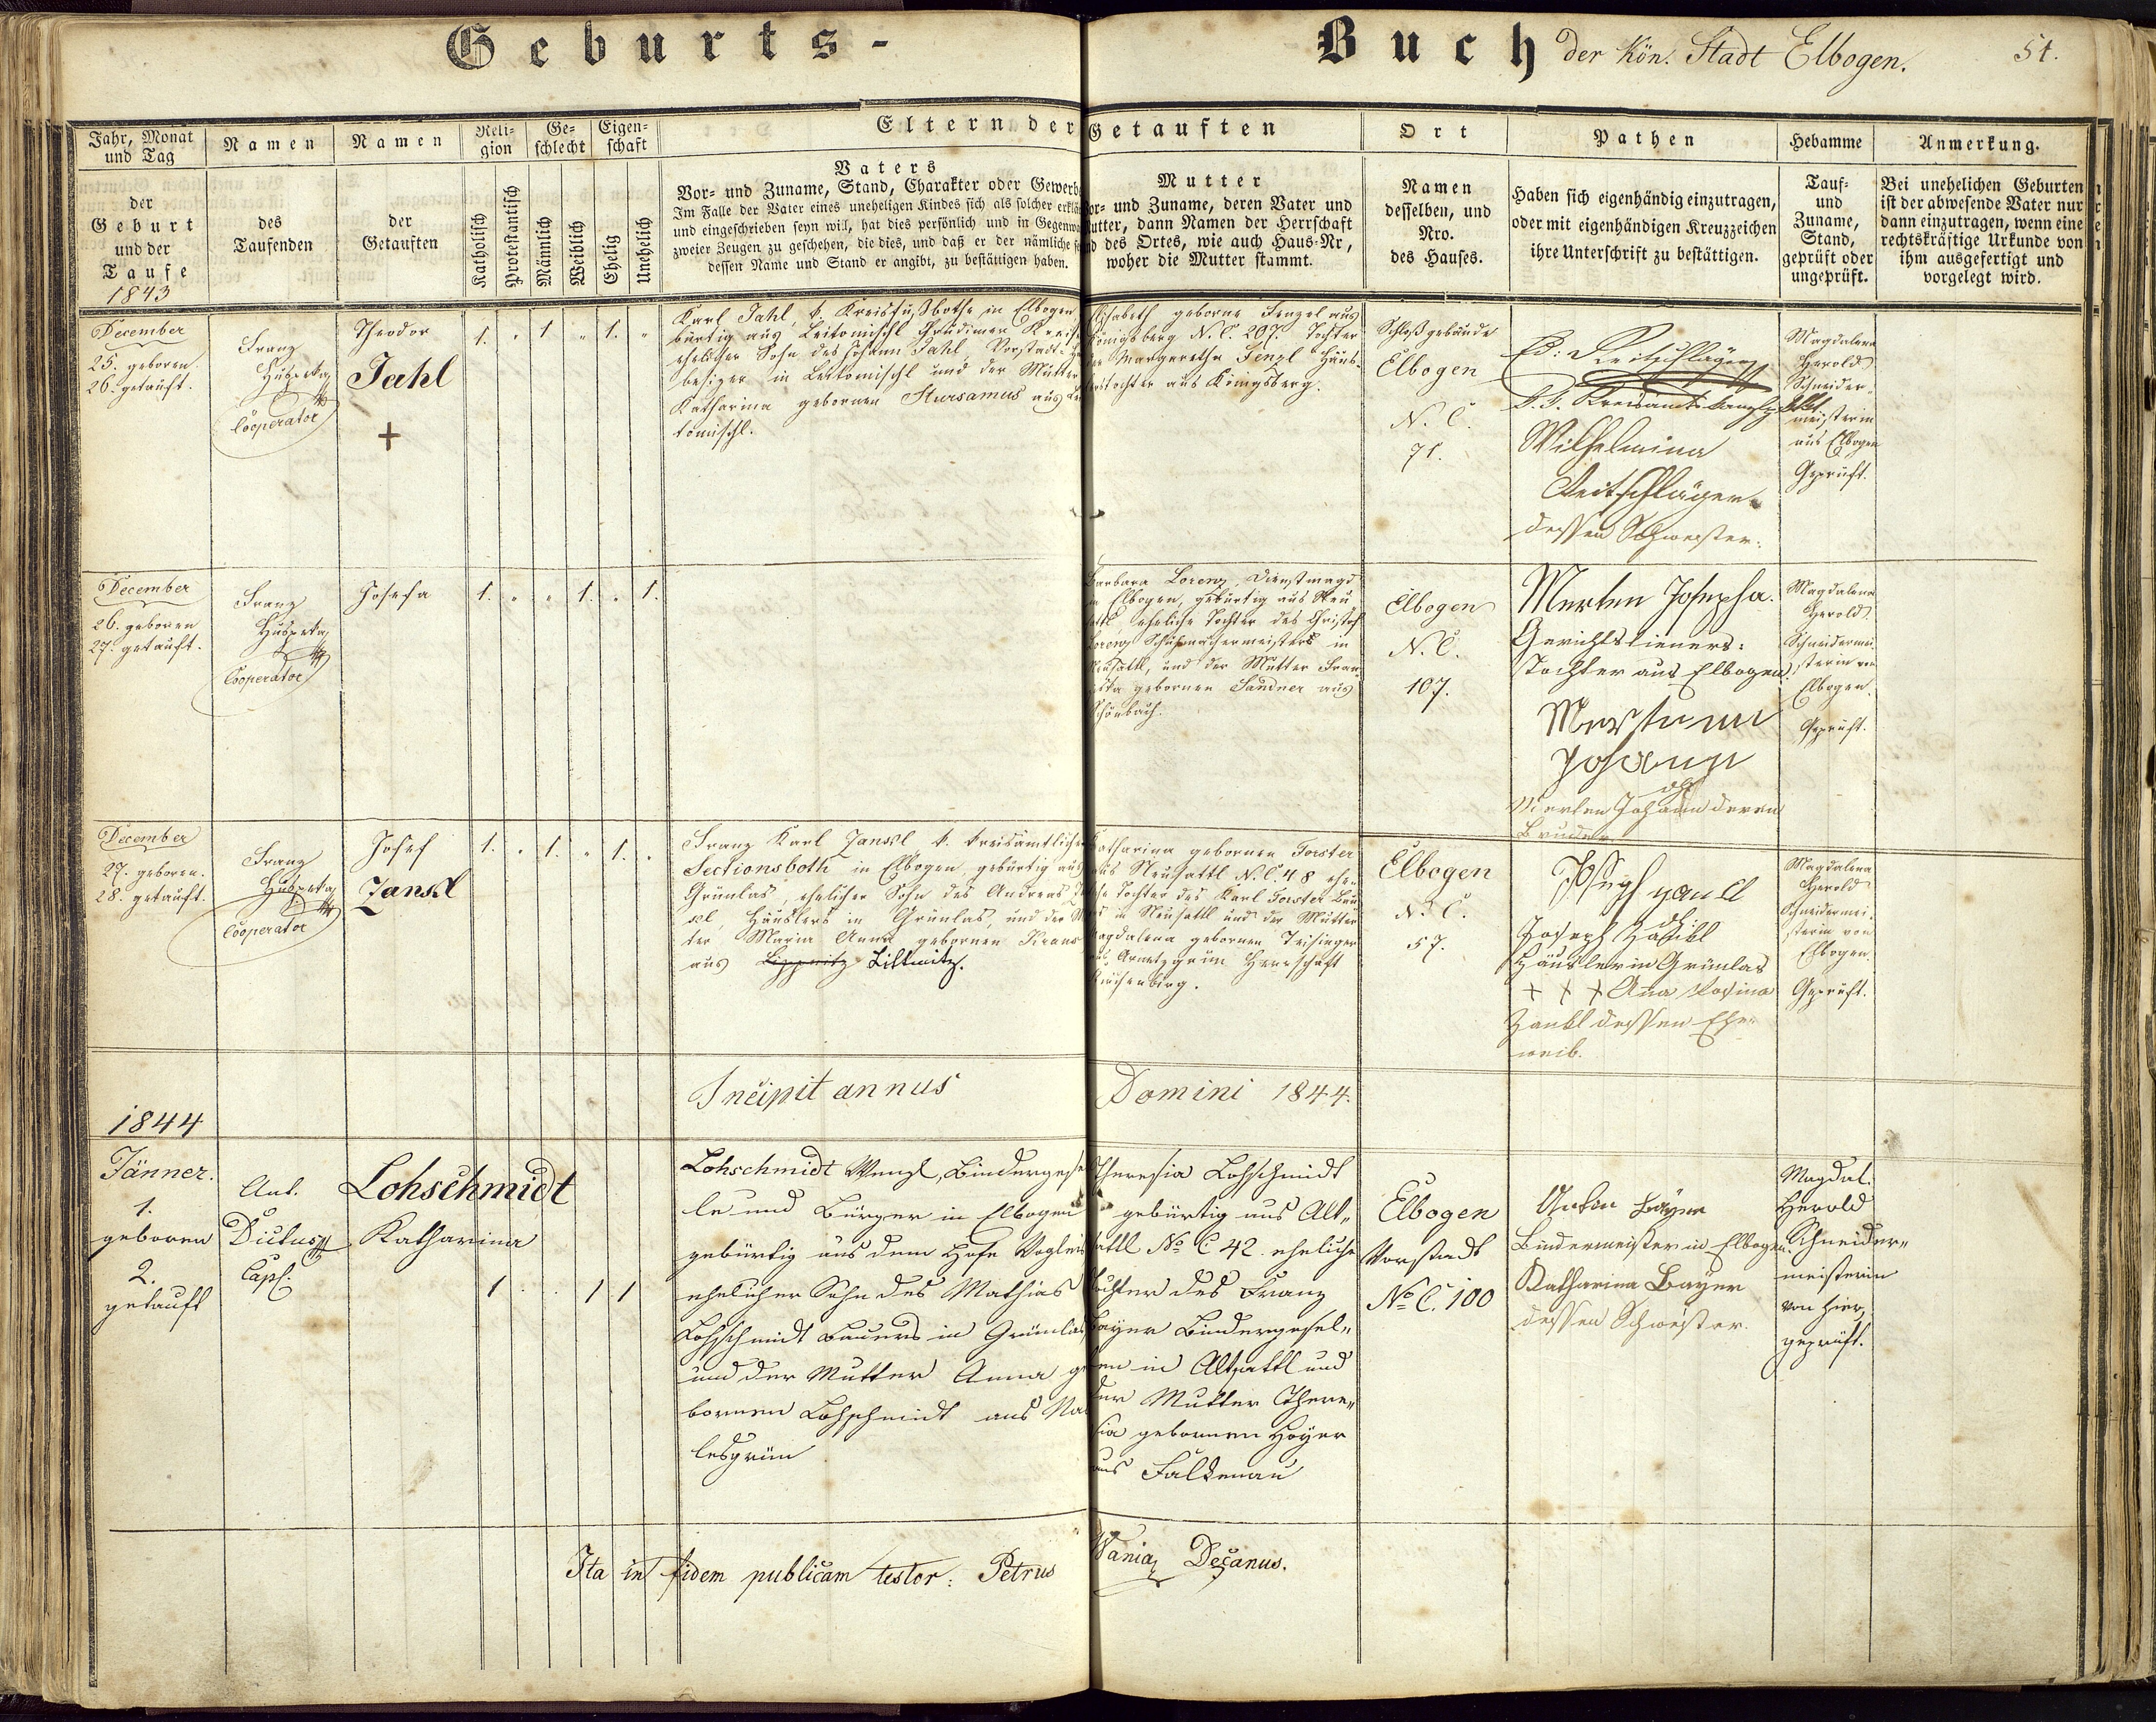 Geburts-
Buch der Kön. Stadt Elbogen. 51.
Jahr, Monat und Tag
der
Geburt
und der
Taufe
1843
Namen
des
Taufenden
Namen
der
Getauften
Reli-
gion
Katholisch
Protestantisch
Ge-
schlecht
Männlich
Weiblich
Eigen-
schaft
Ehelig
Unehelich
Eltern der Getauften
Vaters
Vor- und Zuname, Stand, Charakter oder Gewerb
Im Falle der Vater eines uneheligen Kindes sich als solcher erklä
und eingeschrieben seyn will, hat dies persönlich und in Gegenwa
zweier Zeugen zu geschehen, die dies, und daß er der nämliche se
dessen Name und Stand er angibt, zu bestättigen haben.
Mutter
Vor- und Zuname, deren Vater und
Mutter, dann Namen der Herrschaft
und des Ortes, wie auch Haus-Nr,
woher die Mutter stammt.
Ort
Namen
desselben, und
Nro.
des Hauses.
Pathen
Haben sich eigenhändig einzutragen,
oder mit eigenhändigen Kreuzzeichen
ihre Unterschrift zu bestättigen.
Hebamme
Tauf-
und
Zuname,
Stand,
geprüft oder
ungeprüft.
Anmerkung.
Bei unehelichen Geburten
ist der abwesende Vater nur
dann einzutragen, wenn eine
rechtskräftige Urkunde von
ihm ausgefertigt und
vorgelegt wird.
December
25. geboren.
26. getauft.
Franz
Cooperator
Theodor
Jahl
+
1. " 1 " 1. "
Karl Jahl, k. Kreisfußbothe in Elbogen,
bürtig aus Leitomischl Chrudimer Kreise
ehelicher Sohn des Johann Jahl, Vorstadt-
besizer in Leitomischl und der Mutter
Katharina gebornen Stursamus aus Lei
tomischl.
Elisabeth geborne Fenzel aus
Königsberg N. C. 207. Tochter
der Margaretha Fenzl Häus-
lerstochter aus Königsberg.
Schloßgebäude
Elbogen
N. C.
71.
Wilhelmina
dessen Schwester.
Magdalena
Herold
Schneider
meisterin
aus Elbogen
Geprüft.
December
26. geboren
27. getauft.
Franz
Cooperator
Josefa
1. " " 1. " 1.
Barbara Lorenz, Dienstmagd
in Elbogen, gebürtig aus Neu
sattl eheliche Tochter des Christof
Lorenz Schuhmachermeisters in
Neusattl, und der Mutter Fran
ziska gebornen Sandner aus
Schönbach.
Elbogen
N. C.
107.
Merten Josepha.
Gerichtsdieners-
Tochter aus Elbogen.
Johann
Merten Johann deren
Bruder
Magdalena
Herold
Schneidermei-
sterin von
Elbogen.
Geprüft.
December
27. geboren.
28. getauft.
Franz
Cooperator
Josef
Janskl
1. " 1. " 1. "
Franz Karl Janskl, k. kreisamtlicher
Sectionsboth in Elbogen, gebürtig aus
Grünlas, ehelicher Sohn des Andreas
Häuslers in Grünlas, und der Mu
ter Maria Anna gebornen Kraus
aus Littmitz.
Katharina gebornen Forster
aus Neusattl N. C. 48 ehe-
liche Tochter des Karl Forster
in Neusattl und der Mutter
Magdalena gebornen Trisinger
aus Arnetzgrün Herrschaft
Elbogen
N. C.
57.
Joseph
Häusler in Grünlas
+ + + Anna Rosina
dessen Ehe-
weib.
Magdalena
Herold
Schneidermei-
sterin von
Elbogen.
Geprüft.
1844
Incipit annus Domini 1844.
Jänner.
1.
geboren
2.
getauft
Ant.
Dictus
Capl.
Lohschmidt
Katharina
1 . . 1 1
Lohschmidt Wenzl, Bindergesel
le und Bürger in Elbogen
gebürtig aus dem Hofe
ehelicher Sohn des Mathias
Lohschmidt Bauers in Grünlas
und der Mutter Anna ge
bornen Lohschmidt aus Na
lesgrün
Theresia Lohschmidt
gebürtig aus Alt-
sattl No C 42. eheliche
Tochter des Franz
Bayer Bindergesel-
len in Altsattl und
der Mutter There-
sia gebornen Hoyer
aus Falkenau
Elbogen
Vorstadt
No C. 100
Anton Bayer
Bindermeister in Elbogen.
Katharina Bayer
dessen Schwester.
Magdal.
Herold
Schneider-
meisterin
von hier,
geprüft.
Ita in fidem publicam testor: Petrus Wania Decanus.